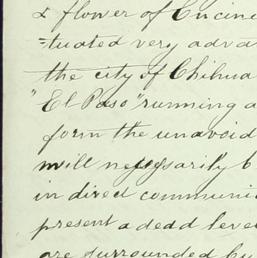 & flower of Encino
=tuated very adva
the city of Chihua
"El Paso" running a
form the unavoid
will necessarily b
in direct communi
present a dead leve
are surrounded by